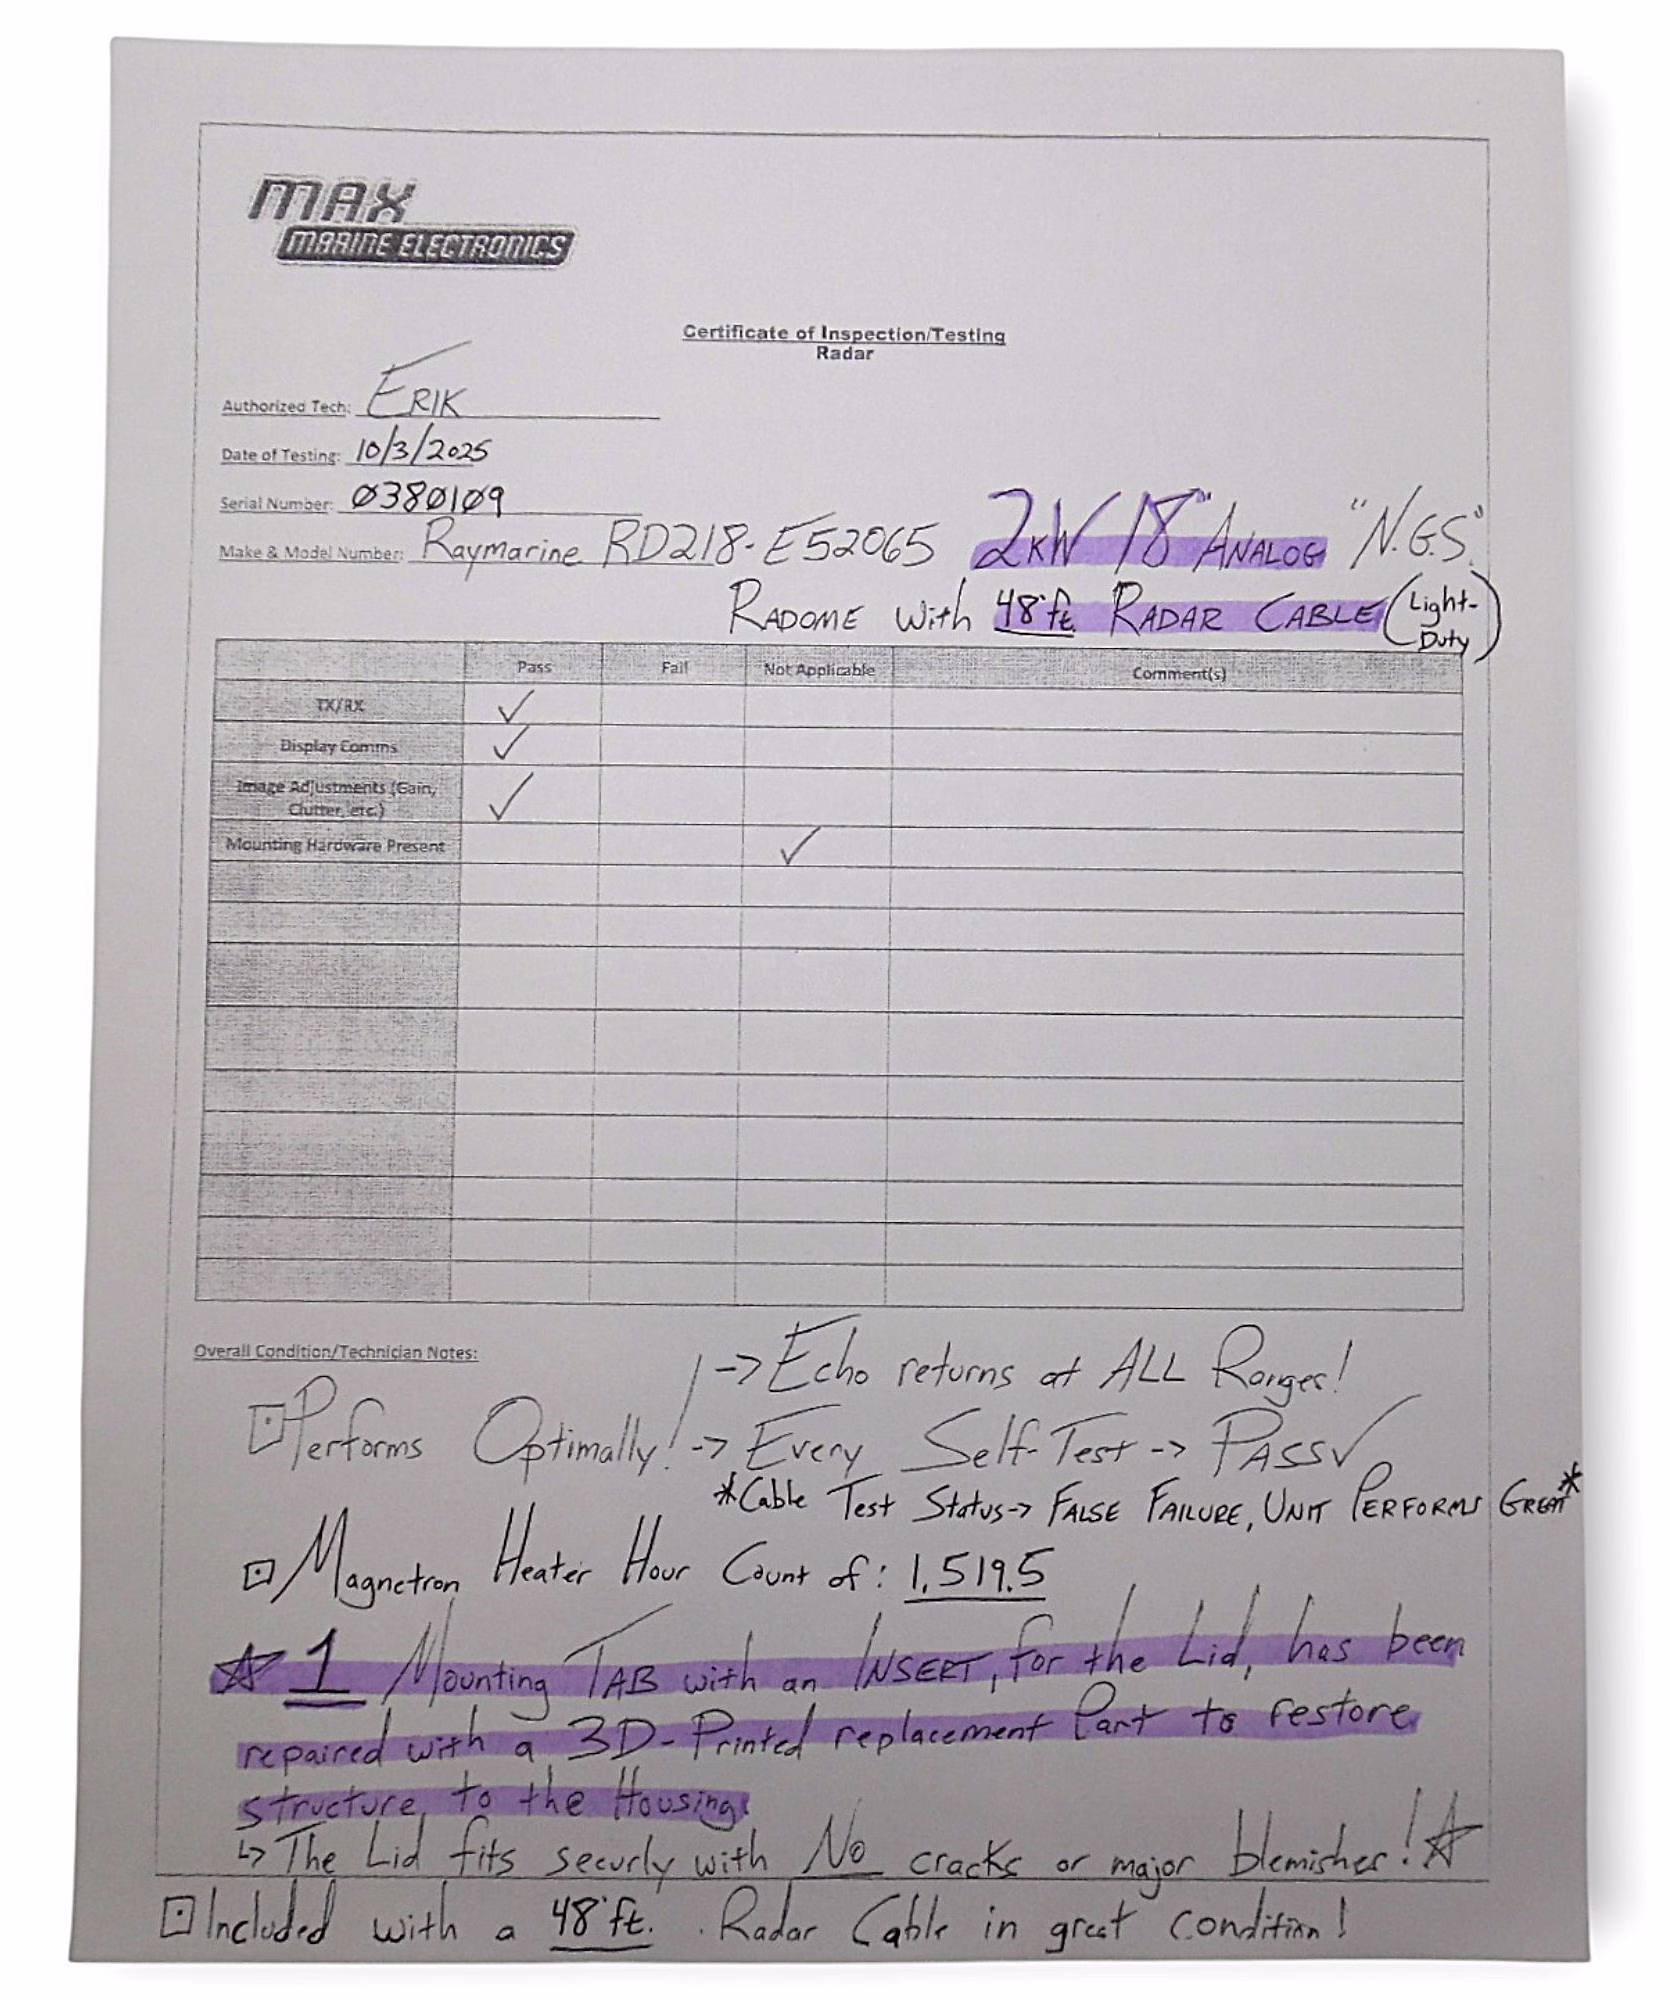 MAX
MARINE ELECTRONICS
Certificate of Inspection/Testing
Radar
Authorized Tech: ERIK
Date of Testing: 10/3/2025
Serial Number: 0380109
Make & Model Number: Raymarine RD218-E52065 2KW 18" ANALOG "N.G.S."
RADOME with 48'ft. RADAR CABLE (Light-Duty)
Pass Fail Not Applicable Comment(s)
TX/RX ✓
Display Comms ✓
Image Adjustments (Gain, Clutter, etc.) ✓
Mounting Hardware Present ✓
Overall Condition/Technician Notes:
-> Echo returns at ALL Ranges!
⊡ Performs Optimally! -> Every Self-Test -> PASS✓
*Cable Test Status -> FALSE FAILURE, UNIT PERFORMS GREAT*
⊡ Magnetron Heater Hour Count of: 1,519.5
☆ 1 Mounting TAB with an INSERT, for the Lid, has been
repaired with a 3D-Printed replacement Part to restore
structure to the Housing.
↳ The Lid fits securly with No cracks or major blemishes! ☆
⊡ Included with a 48'ft. Radar Cable in great condition!